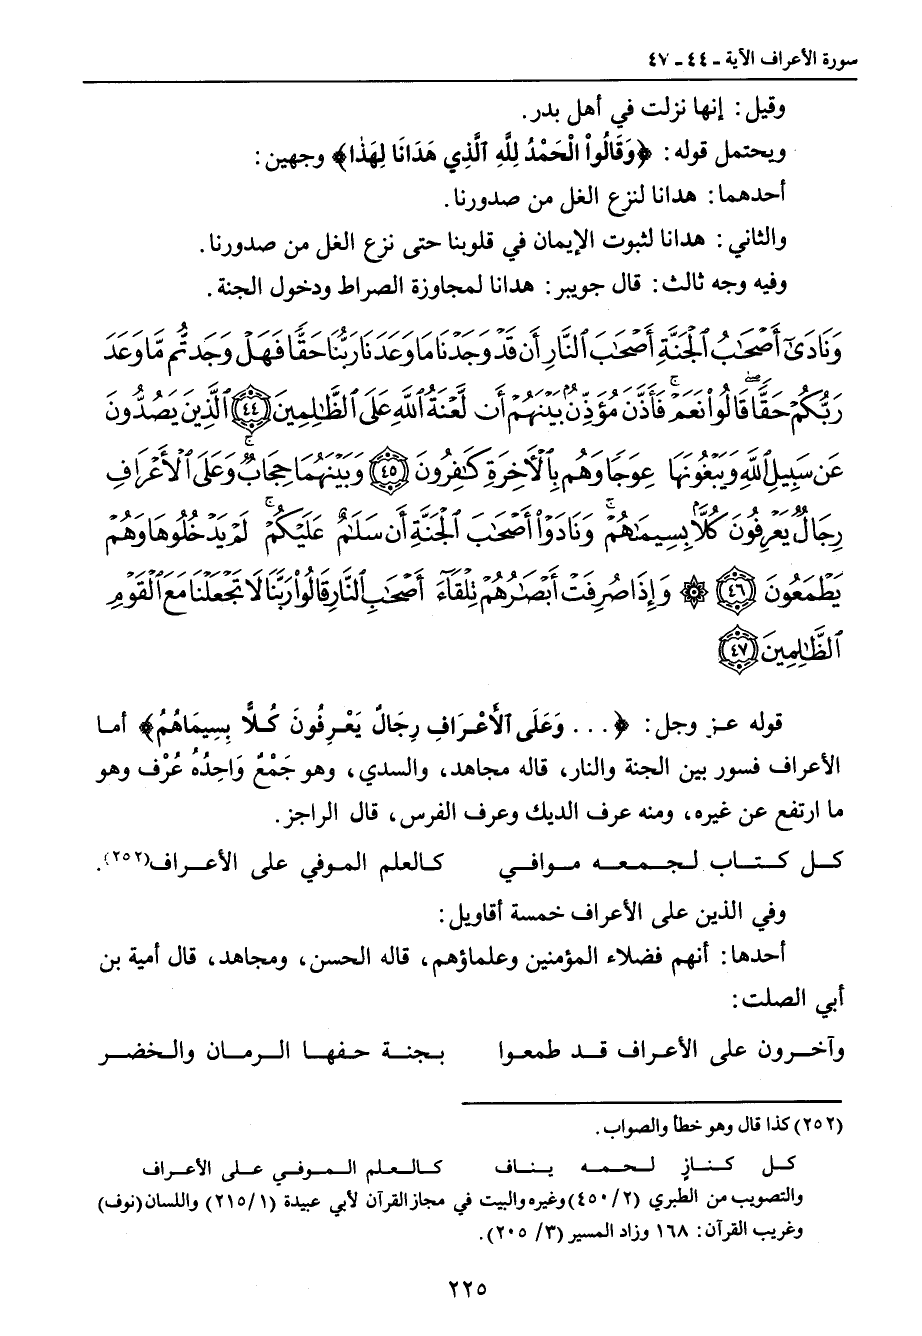 سورة الأعراف الآية ـ ٤٤ ـ ٤٧
وقيل: إنها نزلت في أهل بدر.
ويحتمل قوله: ﴿وَقَالُواْ الْحَمْدُ لِلَّهِ الَّذِي هَدَانَا لِهَٰذَا﴾ وجهين:
أحدهما: هدانا لنزع الغل من صدورنا.
والثاني: هدانا لثبوت الإيمان في قلوبنا حتى نزع الغل من صدورنا.
وفيه وجه ثالث: قال جويبر: هدانا لمجاوزة الصراط ودخول الجنة.
وَنَادَىٰٓ أَصْحَٰبُ ٱلْجَنَّةِ أَصْحَٰبَ ٱلنَّارِ أَن قَدْ وَجَدْنَا مَا وَعَدَنَا رَبُّنَا حَقًّا فَهَلْ وَجَدتُّم مَّا وَعَدَ
رَبُّكُمْ حَقًّا ۖ قَالُوا۟ نَعَمْ ۚ فَأَذَّنَ مُؤَذِّنٌۢ بَيْنَهُمْ أَن لَّعْنَةُ ٱللَّهِ عَلَى ٱلظَّٰلِمِينَ ﴿٤٤﴾ ٱلَّذِينَ يَصُدُّونَ
عَن سَبِيلِ ٱللَّهِ وَيَبْغُونَهَا عِوَجًا وَهُم بِٱلْـَٔاخِرَةِ كَٰفِرُونَ ﴿٤٥﴾ وَبَيْنَهُمَا حِجَابٌ ۚ وَعَلَى ٱلْأَعْرَافِ
رِجَالٌ يَعْرِفُونَ كُلًّۢا بِسِيمَىٰهُمْ ۚ وَنَادَوْا۟ أَصْحَٰبَ ٱلْجَنَّةِ أَن سَلَٰمٌ عَلَيْكُمْ ۚ لَمْ يَدْخُلُوهَا وَهُمْ
يَطْمَعُونَ ﴿٤٦﴾ ۞ وَإِذَا صُرِفَتْ أَبْصَٰرُهُمْ تِلْقَآءَ أَصْحَٰبِ ٱلنَّارِ قَالُوا۟ رَبَّنَا لَا تَجْعَلْنَا مَعَ ٱلْقَوْمِ
ٱلظَّٰلِمِينَ ﴿٤٧﴾
قوله عز وجل: ﴿... وَعَلَى ٱلْأَعْرَافِ رِجَالٌ يَعْرِفُونَ كُلًّا بِسِيمَاهُمْ﴾ أما
الأعراف فسور بين الجنة والنار، قاله مجاهد، والسدي، وهو جَمْعٌ وَاحِدُهُ عُرْف وهو
ما ارتفع عن غيره، ومنه عرف الديك وعرف الفرس، قال الراجز.
كل كتاب لجمعه موافي كالعلم الموفي على الأعراف(٢٥٢).
وفي الذين على الأعراف خمسة أقاويل:
أحدها: أنهم فضلاء المؤمنين وعلماؤهم، قاله الحسن، ومجاهد، قال أمية بن
أبي الصلت:
وآخرون على الأعراف قد طمعوا بجنة حفها الرمان والخضر
(٢٥٢) كذا قال وهو خطأ والصواب.
كل كنازٍ لحمه يناف كالعلم الموفي على الأعراف
والتصويب من الطبري (٢/ ٤٥٠) وغيره والبيت في مجاز القرآن لأبي عبيدة (١/ ٢١٥) واللسان (نوف)
وغريب القرآن: ١٦٨ وزاد المسير (٣/ ٢٠٥).
٢٢٥